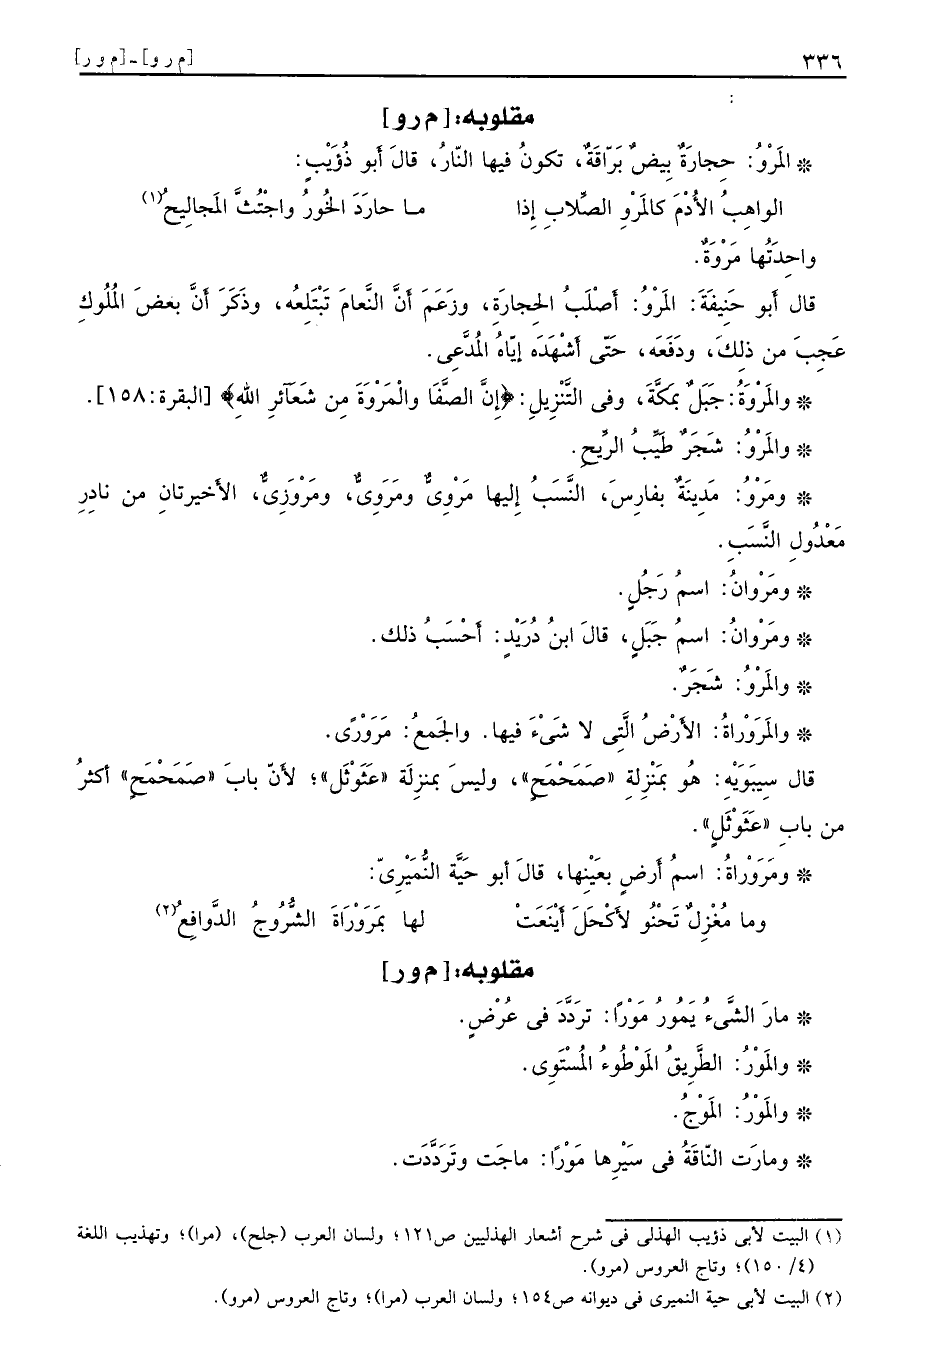 ٣٣٦ [م ر و] ـ [م و ر]
مقلوبه: [م ر و]
* المَرْوُ: حِجارَةٌ بِيضٌ بَرّاقَةٌ، تكونُ فيها النّارُ، قالَ أبو ذُؤَيْبٍ:
الواهِبُ الأُدْمَ كالمَرْوِ الصِّلابِ إذا ما حارَدَ الخُورُ واجْتُثَّ المَجالِيحُ(١)
واحِدَتُها مَرْوَةٌ.
قال أبو حَنِيفَةَ: المَرْوُ: أصْلَبُ الحِجارَةِ، وزَعَمَ أنَّ النَّعامَ تَبْتَلِعُه، وذَكَرَ أنَّ بعضَ المُلُوكِ
عَجِبَ من ذلِكَ، ودَفَعَه، حَتّى أشْهَدَه إيّاهُ المُدَّعِى.
* والمَرْوَةُ: جَبَلٌ بمَكَّةَ، وفى التَّنْزِيلِ: ﴿إنَّ الصَّفَا والْمَرْوَةَ مِن شَعَآئرِ اللهِ﴾ [البقرة: ١٥٨].
* والمَرْوُ: شَجَرٌ طَيِّبُ الرِّيحِ.
* ومَرْوُ: مَدِينَةٌ بفارِسَ، النَّسَبُ إليها مَرْوِىٌّ ومَرَوِىٌّ، ومَرْوَزِىٌّ، الأخيرتانِ من نادِرِ
مَعْدُولِ النَّسَبِ.
* ومَرْوانُ: اسمُ رَجُلٍ.
* ومَرْوانُ: اسمُ جَبَلٍ، قالَ ابنُ دُرَيْدٍ: أحْسَبُ ذلك.
* والمَرْوُ: شَجَرٌ.
* والمَرَوْراةُ: الأرْضُ الَّتِى لا شَىْءَ فيها. والجَمعُ: مَرَوْرًى.
قال سِيبَوَيْهِ: هُو بمَنْزِلةِ «صَمَحْمَحٍ»، وليسَ بمنزِلَة «عَثَوْثَلٍ»؛ لأنّ بابَ «صَمَحْمَحٍ» أكثرُ
من بابِ «عَثَوْثَلٍ».
* ومَرَوْراةُ: اسمُ أرضٍ بعَيْنِها، قالَ أبو حَيَّة النُّمَيْرِىّ:
وما مُغْزِلٌ تَحْنُو لأكْحَلَ أيْنَعَتْ لها بمَرَوْرَاةَ الشُّرُوجُ الدَّوافِعُ(٢)
مقلوبه: [م و ر]
* مارَ الشَّىءُ يَمُورُ مَوْرًا: تردَّدَ فى عُرْضٍ.
* والمَوْرُ: الطَّرِيقُ المَوْطُوءُ المُسْتَوِى.
* والمَوْرُ: المَوْجُ.
* ومارَت النّاقَةُ فى سَيْرِها مَوْرًا: ماجَت وتَرَدَّدَت.
(١) البيت لأبى ذؤيب الهذلى فى شرح أشعار الهذليين ص١٢١؛ ولسان العرب (جلح)، (مرا)؛ وتهذيب اللغة
(٤/ ١٥٠)؛ وتاج العروس (مرو).
(٢) البيت لأبى حية النميرى فى ديوانه ص١٥٤؛ ولسان العرب (مرا)؛ وتاج العروس (مرو).